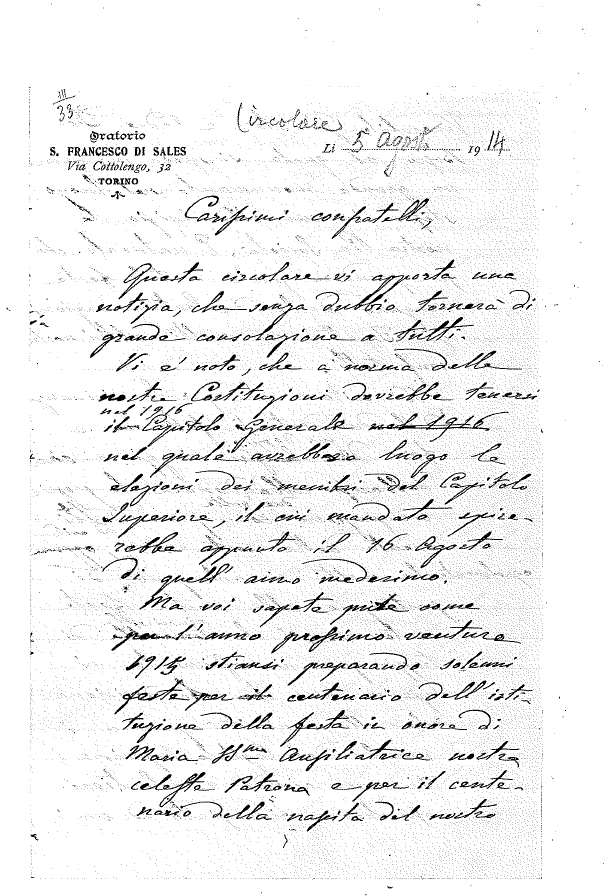 III
33
Circolare
Oratorio
S. FRANCESCO DI SALES
Via Cottolengo, 32
TORINO
Li 5 Agosto 1914
Carissimi confratelli,
Questa circolare vi apporta una
notizia, che senza dubbio tornerà di
grande consolazione a tutti.
Vi è noto, che a norma delle
nostre Costituzioni dovrebbe tenersi
nel 1916
il Capitolo Generale nel 1916
nel quale avrebbero luogo le
elezioni dei membri del Capitolo
Superiore, il cui mandato spire-
rebbe appunto il 16 Agosto
di quell'anno medesimo.
Ma voi sapete pure come
per l'anno prossimo venturo
1915 stiansi preparando solenni
feste per il centenario dell'isti-
tuzione della festa in onore di
Maria SSma Ausiliatrice nostra
celeste Patrona e per il cente-
nario della nascita del nostro